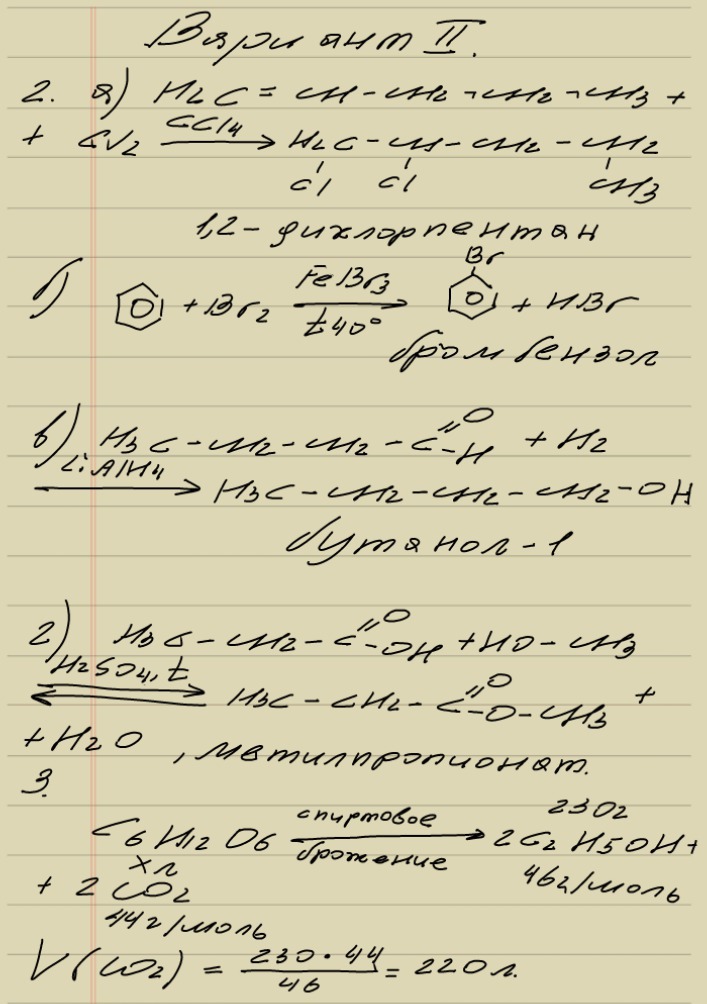 Вариант II.
2. а) H2C = CH - CH2 - CH2 - CH3 +
+ Cl2 CCl4 → H2C - CH - CH2 - CH2
Cl Cl CH3
1,2 - дихлорпентан
Br
б) + Br2 FeBr3 → + HBr
t 40°
бромбензол
в) H3C - CH2 - CH2 - C=O -H + H2
LiAlH4 → H3C - CH2 - CH2 - CH2 - OH
бутанол - 1
г) H3C - CH2 - C=O -OH + HO - CH3
H2SO4, t ⇄ H3C - CH2 - C=O -O - CH3 +
+ H2O , метилпропионат.
3.
230г
C6H12O6 спиртовое брожение → 2C2H5OH +
x л 46г/моль
+ 2 CO2
44г/моль
V(CO2) = 230 · 44 / 46 = 220 л.